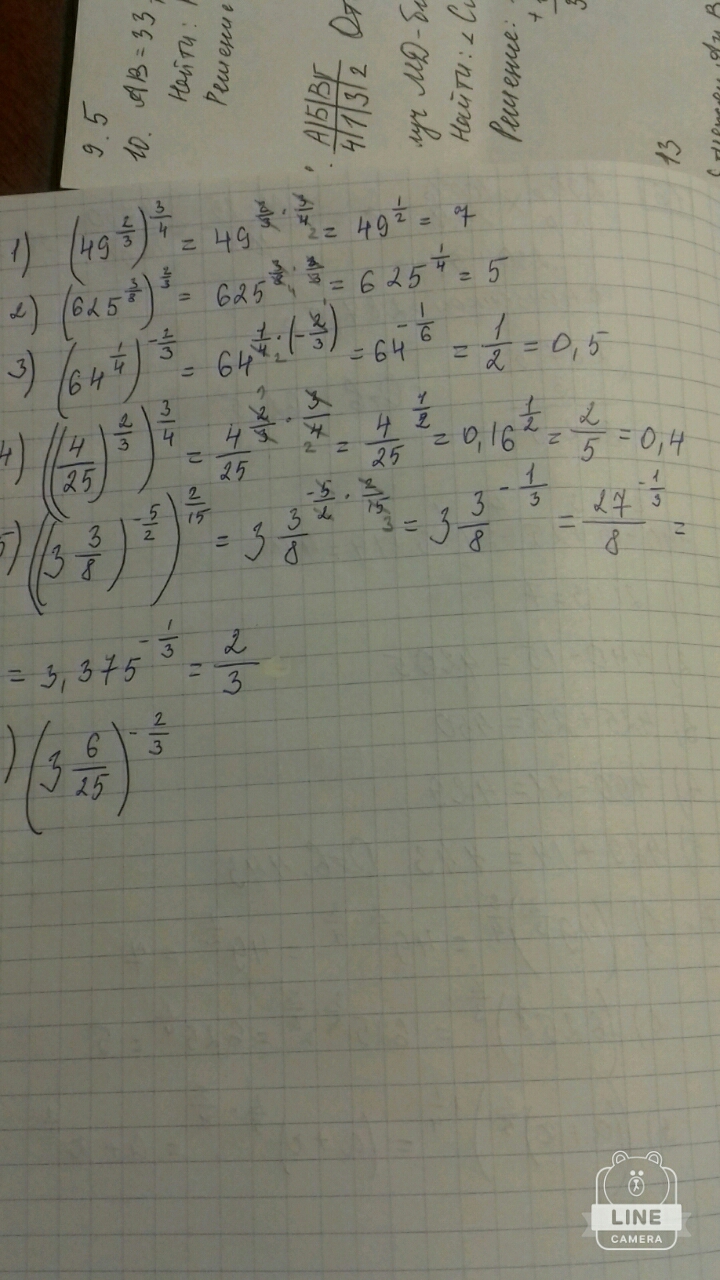 9.5
10. AB = 33
Найти:
Решение
А|Б|В|Г
4|1|3|2
От
луч MD-би
Найти: ∠ С
Решение:
13
1) (49^(2/3))^(3/4) = 49^(2/3 · 3/4) = 49^(1/2) = 7
2) (625^(3/8))^(2/3) = 625^(3/8 · 2/3) = 625^(1/4) = 5
3) (64^(1/4))^(-2/3) = 64^(1/4 · (-2/3)) = 64^(-1/6) = 1/2 = 0,5
4) ((4/25)^(2/3))^(3/4) = 4/25^(2/3 · 3/4) = 4/25^(1/2) = 0,16^(1/2) = 2/5 = 0,4
5) ((3 3/8)^(-5/2))^(2/15) = 3 3/8^(-5/2 · 2/15) = 3 3/8^(-1/3) = 27/8^(-1/3) =
= 3,375^(-1/3) = 2/3
) (3 6/25)^(-2/3)
LINE
CAMERA